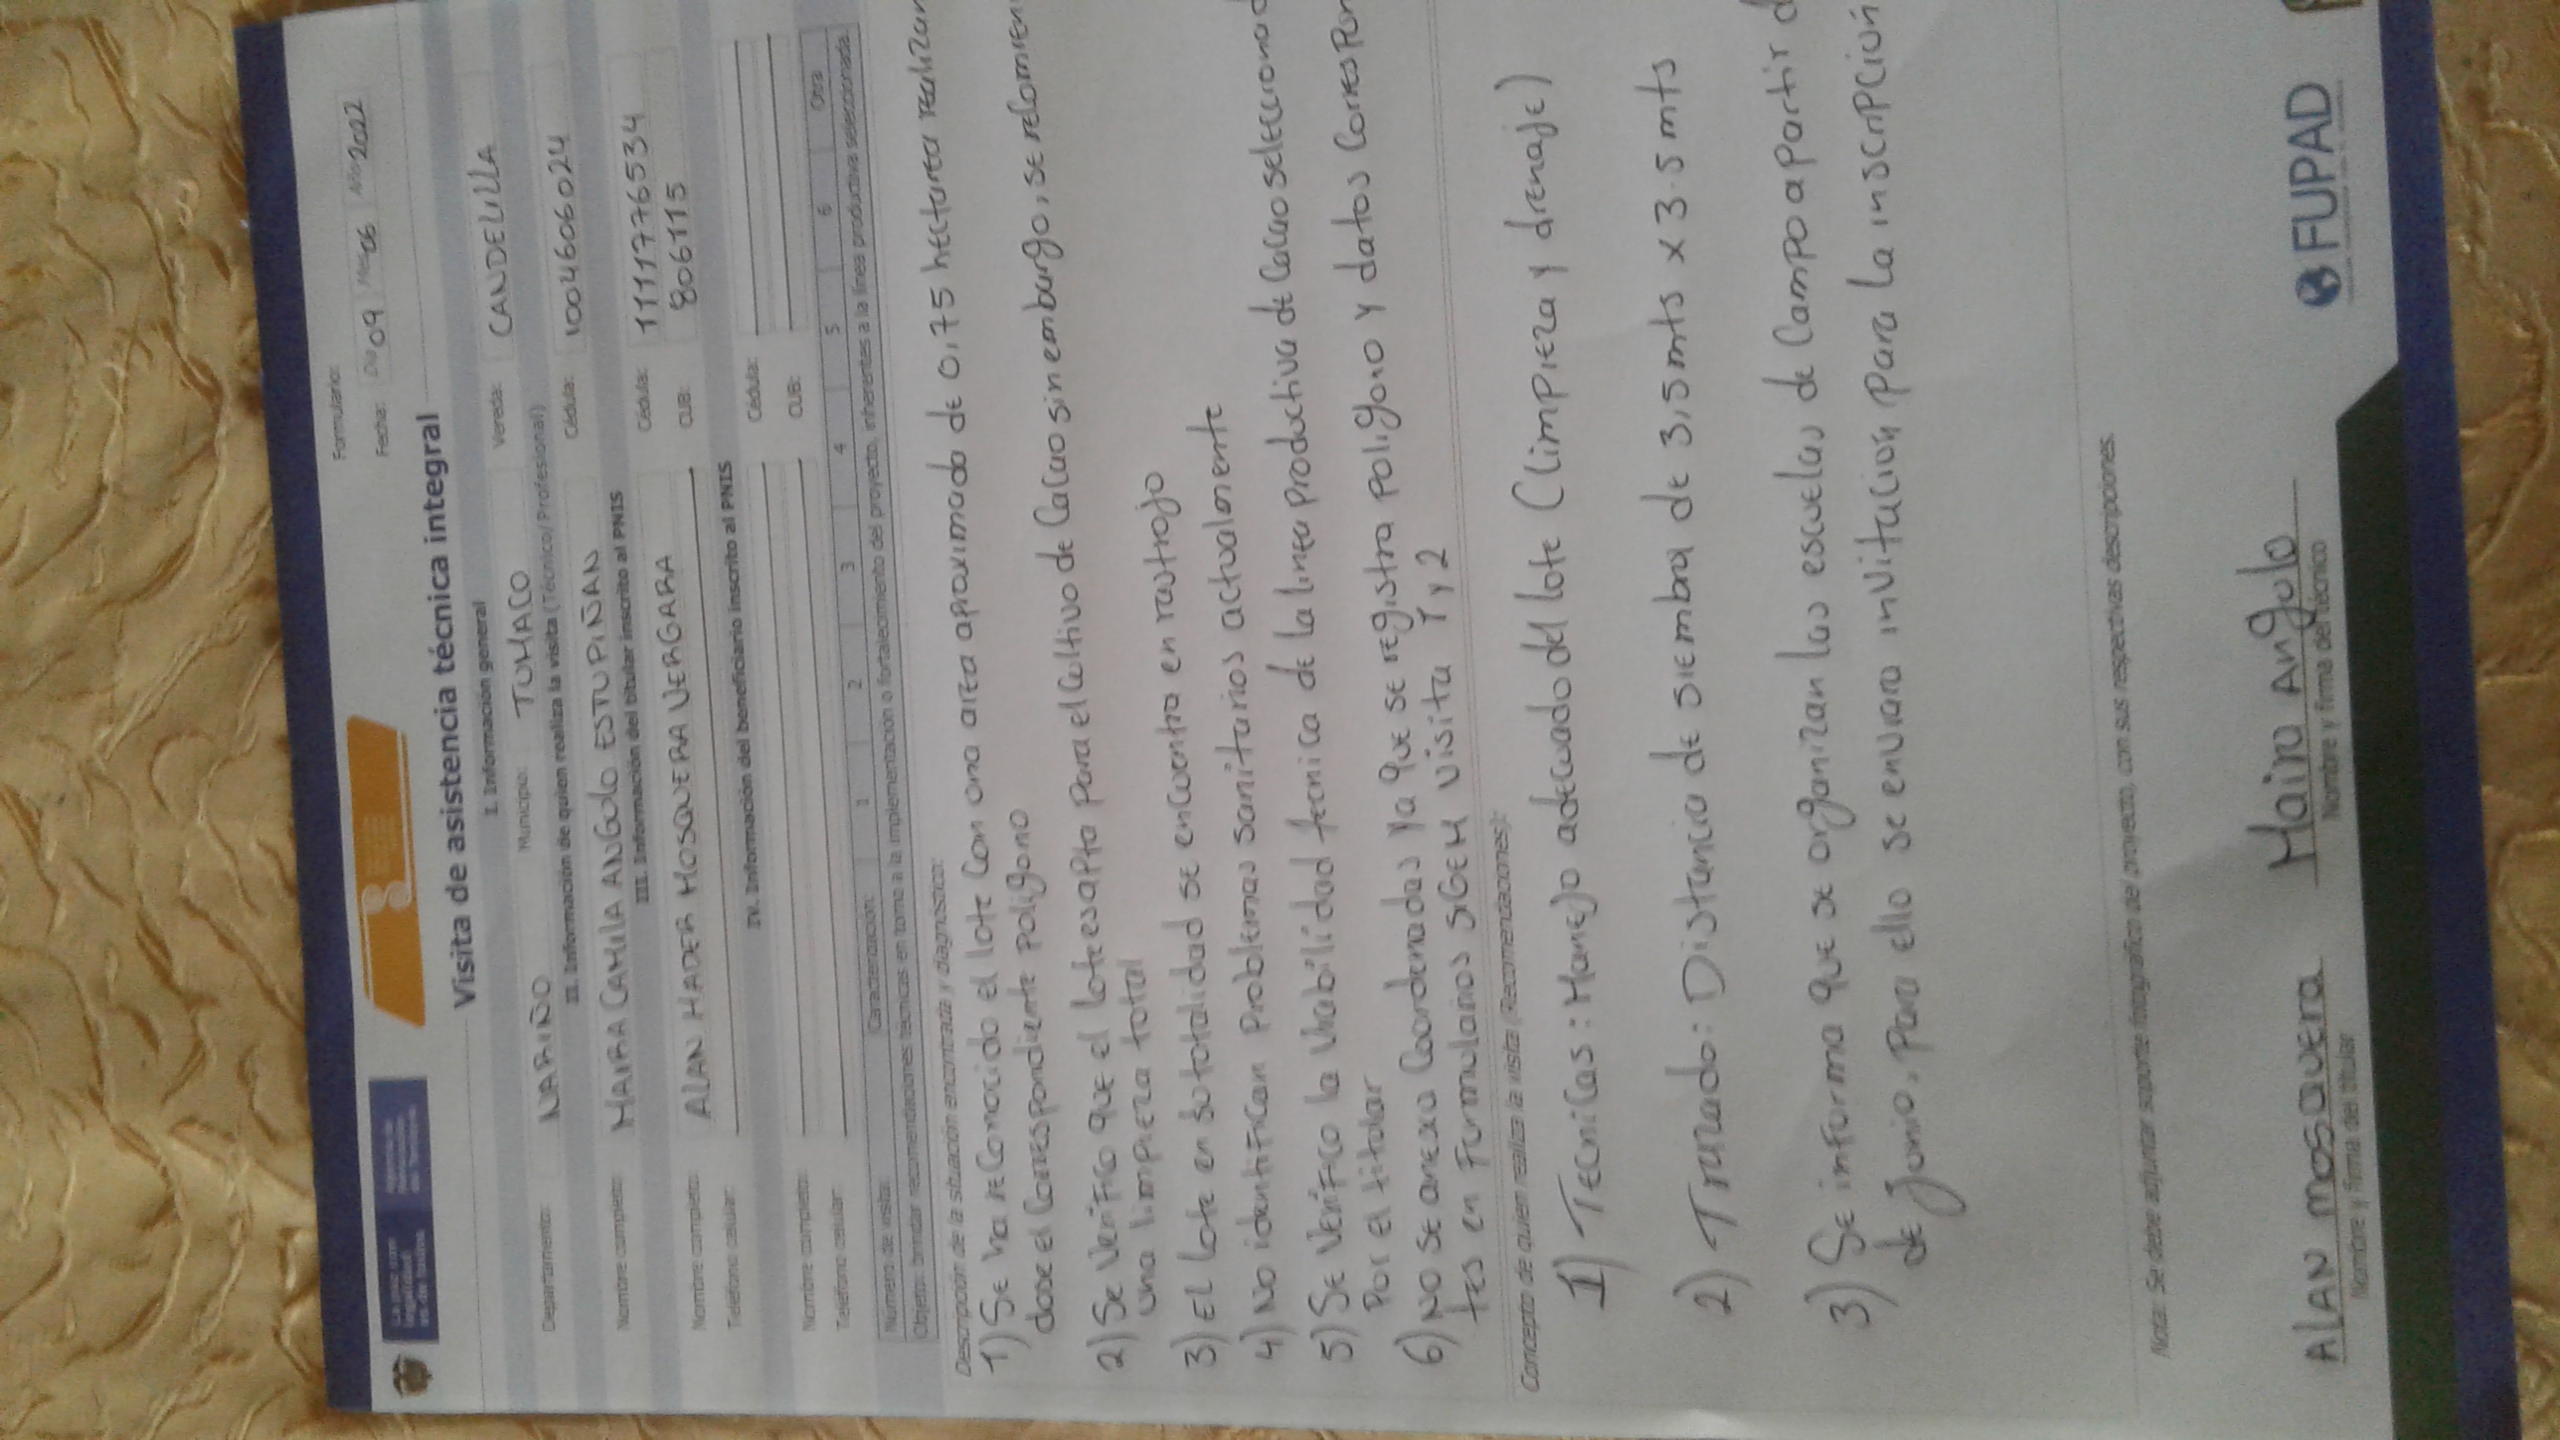 Formulario:
Fecha: Día 09 Mes 06 Año 2022
Visita de asistencia técnica integral
I. Información general
Departamento: NARIÑO Municipio: TUMACO Vereda: CANDELILLA
II. Información de quien realiza la visita (Técnico/Profesional)
Nombre completo: MAIRA CAMILA ANGULO ESTUPIÑAN Cédula: 1004606024
III. Información del titular inscrito al PNIS
Nombre completo: ALAN MADER MOSQUERA VERGARA Cédula: 1111776534
Teléfono celular: CUB: 806115
IV. Información del beneficiario inscrito al PNIS
Nombre completo: Cédula:
Teléfono celular: CUB:
Número de visita: Caracterización: 1 2 3 4 5 6 Otra
Objeto: brindar recomendaciones técnicas en torno a la implementación o fortalecimiento del proyecto, inherentes a la línea productiva seleccionada.
Descripción de la situación encontrada y diagnóstico:
1) Se ha reconocido el lote con una area aproximada de 0,75 hectarea realizan
dose el correspondiente poligono
2) Se verifico que el lote es apto para el cultivo de cacao sin embargo, se recomien
una limpieza total
3) El lote en su totalidad se encuentra en rastrojo
4) No identifican problemas sanitarios actualmente
5) Se verifico la viabilidad tecnica de la linea productiva de cacao seleccionad
por el titular
6) No se anexa coordenadas ya que se registra poligono y datos correspon
tes en formularios SIGEM visita 1 y 2
Concepto de quien realiza la visita (Recomendaciones):
1) Tecnicas: Manejo adecuado del lote (limpieza y drenaje)
2) Trazado: Distancia de siembra de 3,5 mts x 3.5 mts
3) Se informa que se organizan las escuelas de campo a partir d
de junio. Para ello se enviara invitacion para la inscripción
Nota: Se debe adjuntar soporte fotográfico del proyecto, con sus respectivas descripciones.
ALAN MOSQUERA Maira Angulo
Nombre y firma del titular Nombre y firma del técnico
FUPAD